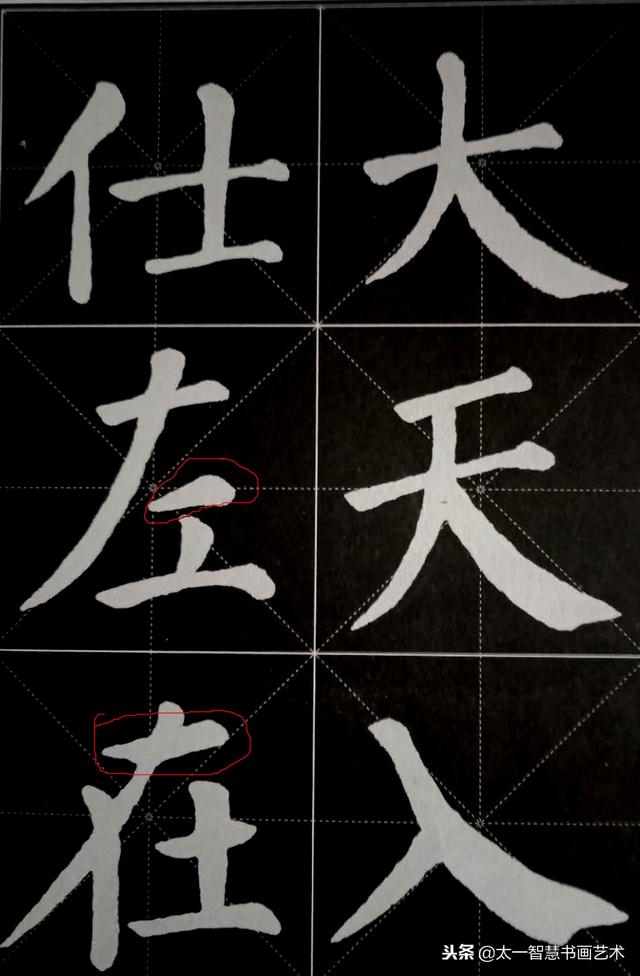 大天入
仕左在
头条 @太一智慧书画艺术